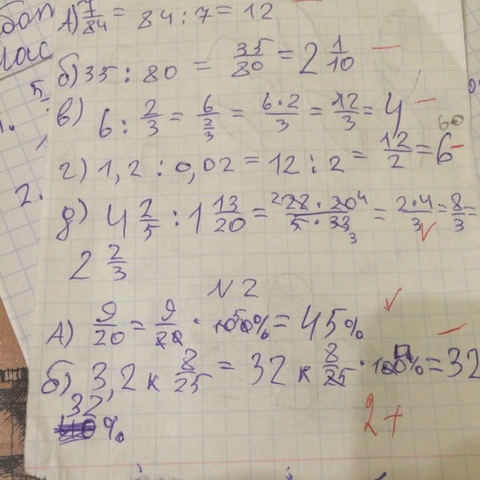 А) 7/84 = 84 : 7 = 12
б) 35 : 80 = 35/80 = 2 1/10
в) 6 : 2/3 = 6/(2/3) = 6·2/3 = 12/3 = 4
г) 1,2 : 0,02 = 12 : 2 = 12/2 = 6
60
2.
д) 4 2/5 : 1 13/20 = 22·20/5·33 = 2·4/3 = 8/3 =
2 2/3
N2
А) 9/20 = 9/20 · 100% = 45%
б) 3,2 к 8/25 = 32 к 8/25 · 100% = 32
32
%
2+